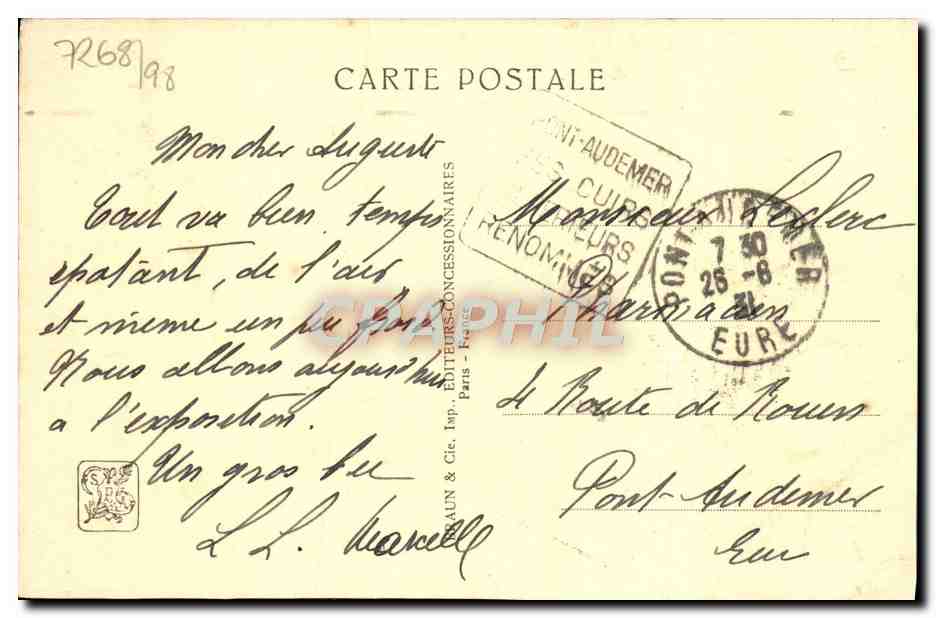 7268/98
CARTE POSTALE
Mon cher Auguste
Tout va bien, temps
epatant, de l'air
et meme un peu froid
Nous allons aujourd'hui
a l'exposition.
Un gros
L L. Marcelle
BRAUN & Cie, Imp., EDITEURS-CONCESSIONNAIRES
Paris - France
PONT-AUDEMER
SES CUIRS
RENOMMÉS
PONT-AUDEMER
7 30
26 -6
31
EURE
CPAPHIL
Monsieur Leclerc
Pharmacien
4 Route de Rouen
Pont-Audemer
Eure